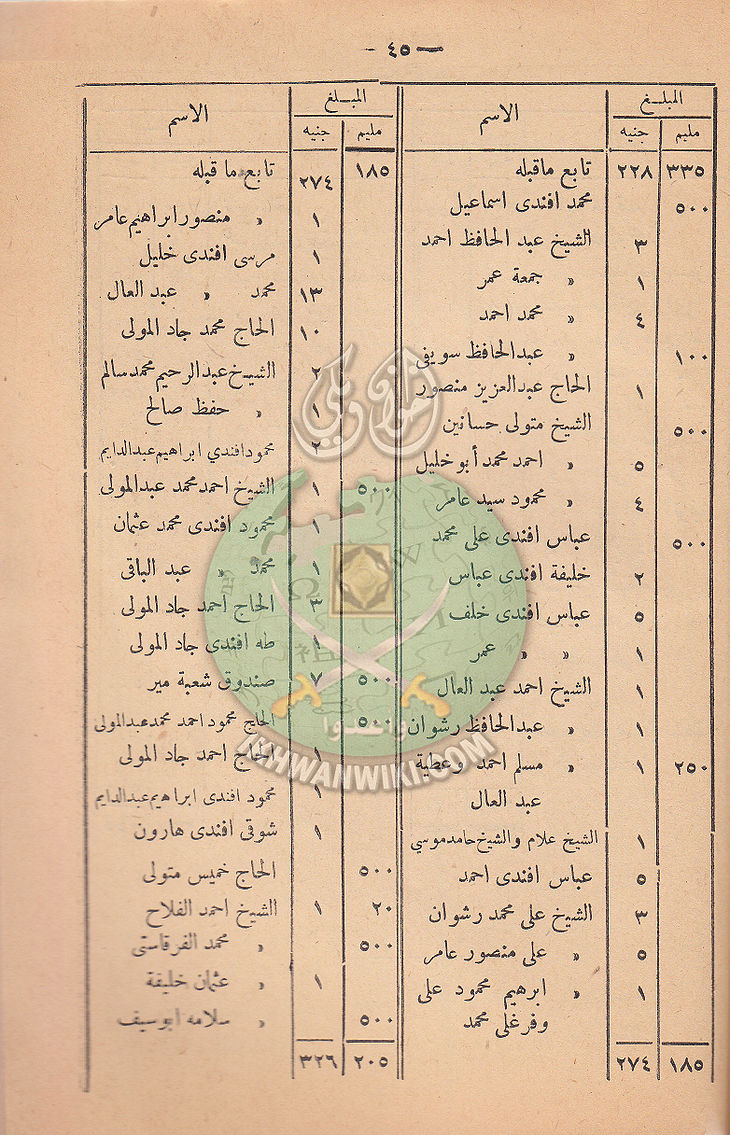 — ٤٥ —
المبلغ الاسم
مليم جنيه
٣٣٥ ٢٢٨ تابع ماقبله
٥٠٠ محمد افندى اسماعيل
٣ الشيخ عبد الحافظ احمد
١ » جمعة عمر
٤ » محمد احمد
١٠٠ » عبدالحافظ سويفى
١ الحاج عبدالعزيز منصور
٥٠٠ الشيخ متولى حسانين
٥ » احمد محمد أبو خليل
٤ » محمود سيد عامر
٥٠٠ عباس افندى على محمد
٢ خليفة افندى عباس
٥ عباس افندى خلف
١ » » عمر
١ الشيخ احمد عبد العال
١ » عبدالحافظ رشوان
٢٥٠ ١ » مسلم احمد وعطية
عبد العال
١ الشيخ علام والشيخ حامد موسي
٥ عباس افندى احمد
٣ الشيخ على محمد رشوان
٥ » على منصور عامر
١ » ابرهيم محمود على
وفرغلى محمد
١٨٥ ٢٧٤
المبلغ الاسم
مليم جنيه
١٨٥ ٢٧٤ تابع ما قبله
١ » منصور ابراهيم عامر
١ مرسى افندى خليل
١٣ محمد » عبد العال
١٠ الحاج محمد جاد المولى
٢ الشيخ عبد الرحيم محمد سالم
١ » حفظ صالح
٢ محمود افندي ابراهيم عبدالدايم
٥٠٠ ١ الشيخ احمد محمد عبدالمولى
١ محمود افندى محمد عثمان
١ محمد » عبد الباقى
٣ الحاج احمد جاد المولى
١ طه افندى جاد المولى
٥٠٠ ٧ صندوق شعبة مير
٥٠٠ الحاج محمود احمد محمد عبدالمولى
١ الحاج احمد جاد المولى
١ محمود افندى ابراهيم عبدالدايم
١ شوقى افندى هارون
٥٠٠ الحاج خميس متولى
٢٠ ١ الشيخ احمد الفلاح
٥٠٠ » محمد الفرقاستى
١ » عثمان خليفة
٥٠٠ » سلامه ابوسيف
٢٠٥ ٣٢٦
إخوان ويكي
وأعدوا
IKHWANWIKI.COM